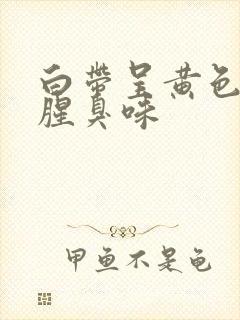 白带呈黄色
腥臭味
甲鱼不是龟